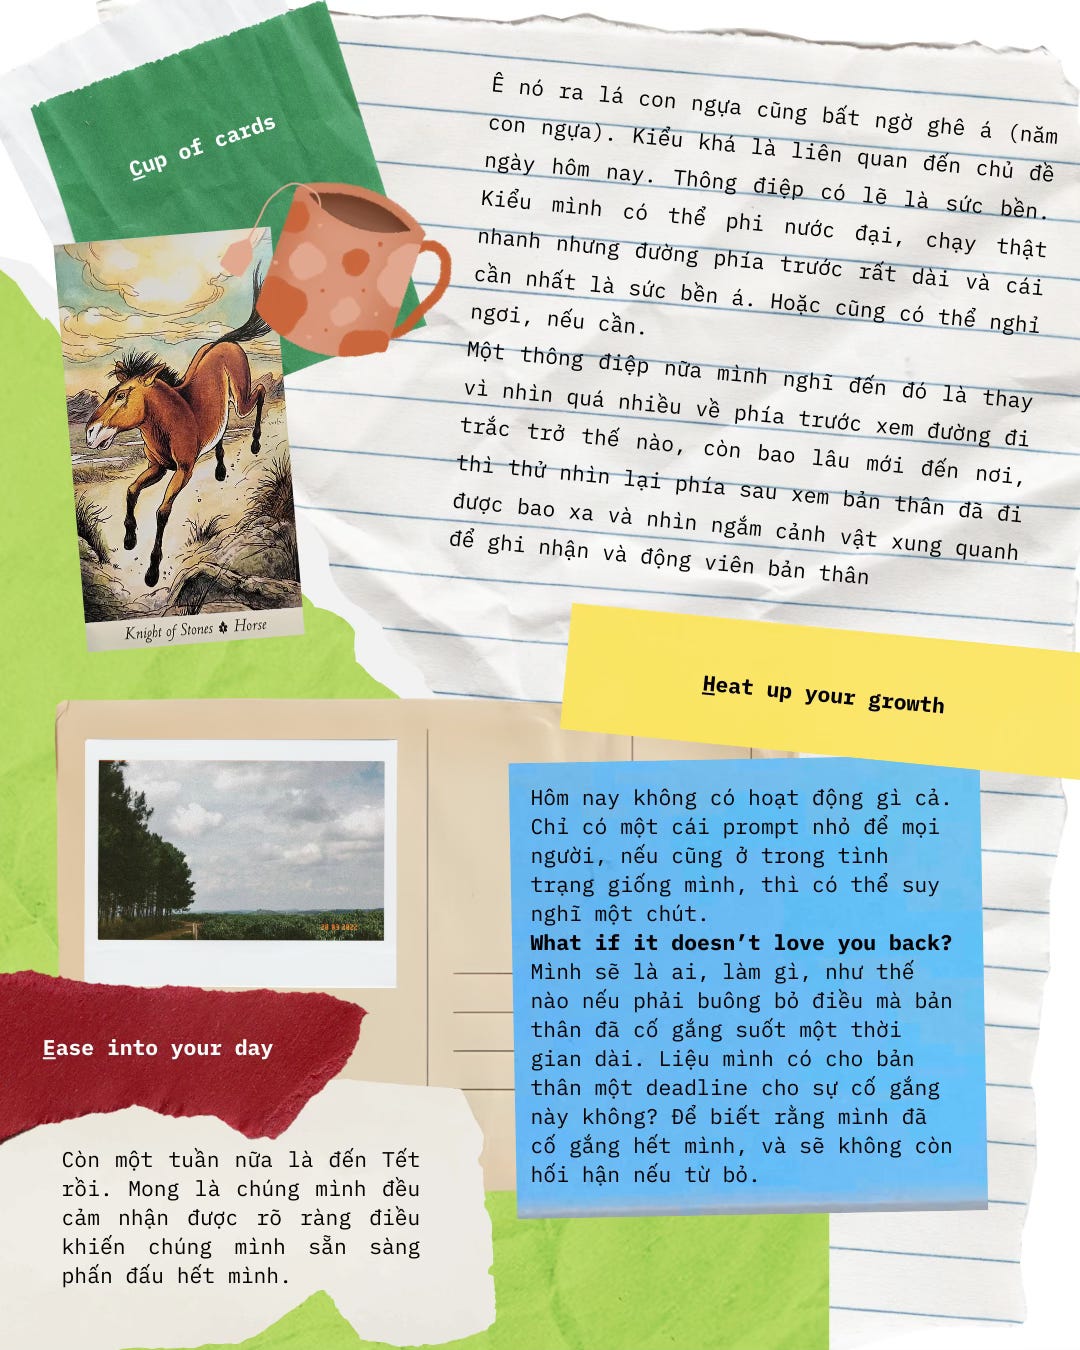 Cup of cards
Ê nó ra lá con ngựa cũng bất ngờ ghê á (năm
con ngựa). Kiểu khá là liên quan đến chủ đề
ngày hôm nay. Thông điệp có lẽ là sức bền.
Kiểu mình có thể phi nước đại, chạy thật
nhanh nhưng đường phía trước rất dài và cái
cần nhất là sức bền á. Hoặc cũng có thể nghỉ
ngơi, nếu cần.
Một thông điệp nữa mình nghĩ đến đó là thay
vì nhìn quá nhiều về phía trước xem đường đi
trắc trở thế nào, còn bao lâu mới đến nơi,
thì thử nhìn lại phía sau xem bản thân đã đi
được bao xa và nhìn ngắm cảnh vật xung quanh
để ghi nhận và động viên bản thân
Knight of Stones Horse
Heat up your growth
Hôm nay không có hoạt động gì cả.
Chỉ có một cái prompt nhỏ để mọi
người, nếu cũng ở trong tình
trạng giống mình, thì có thể suy
nghĩ một chút.
What if it doesn't love you back?
Mình sẽ là ai, làm gì, như thế
nào nếu phải buông bỏ điều mà bản
thân đã cố gắng suốt một thời
gian dài. Liệu mình có cho bản
thân một deadline cho sự cố gắng
này không? Để biết rằng mình đã
cố gắng hết mình, và sẽ không còn
hối hận nếu từ bỏ.
Ease into your day
Còn một tuần nữa là đến Tết
rồi. Mong là chúng mình đều
cảm nhận được rõ ràng điều
khiến chúng mình sẵn sàng
phấn đấu hết mình.